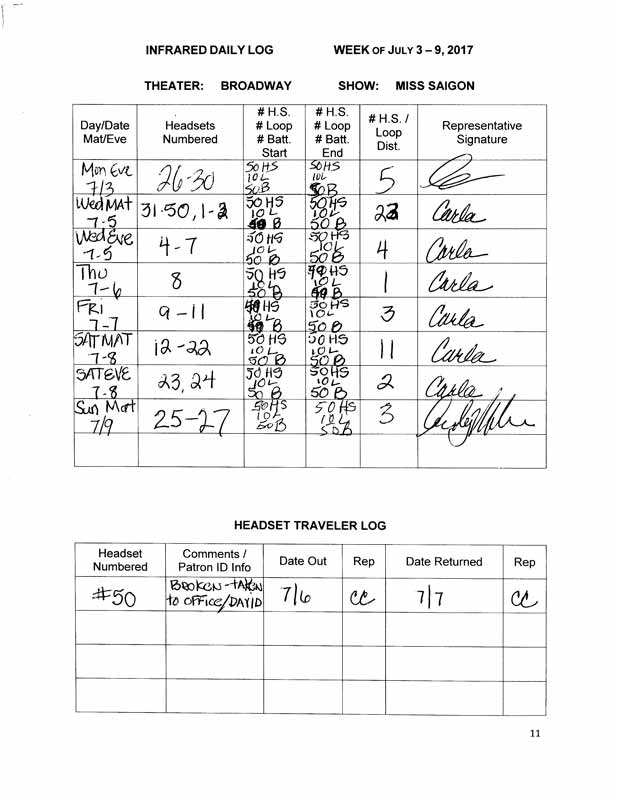 INFRARED DAILY LOG WEEK OF JULY 3 – 9, 2017
THEATER: BROADWAY SHOW: MISS SAIGON
Day/Date Mat/Eve Headsets Numbered # H.S. # Loop # Batt. Start # H.S. # Loop # Batt. End # H.S. / Loop Dist. Representative Signature
Mon Eve 7/3 26-30 50HS 10L 50B 50HS 10L 50B 5
Wed MAT 7-5 31-50, 1-3 50 HS 10 L 50 B 50HS 10L 50 B 23 Carla
Wed Eve 7-5 4-7 50 HS 10 L 50 B 50 HS 10L 50 B 4 Carla
Thu 7-6 8 50 HS 10L 50 B 49 HS 10 L 49 B 1 Carla
FRI 7-7 9-11 49 HS 10 L 49 B 50 HS 10L 50 B 3 Carla
SAT MAT 7-8 12-22 50 HS 10 L 50 B 50 HS 10 L 50 B 11 Carla
SAT EVE 7-8 23, 24 50 HS 10L 50 B 50HS 10L 50 B 2 Carla
Sun Mat 7/9 25-27 50HS 10L 50B 50 HS 10L 50B 3
HEADSET TRAVELER LOG
Headset Numbered Comments / Patron ID Info Date Out Rep Date Returned Rep
#50 BROKEN-TAKEN to OFFICE/DAVID 7/6 CC 7/7 CC
11